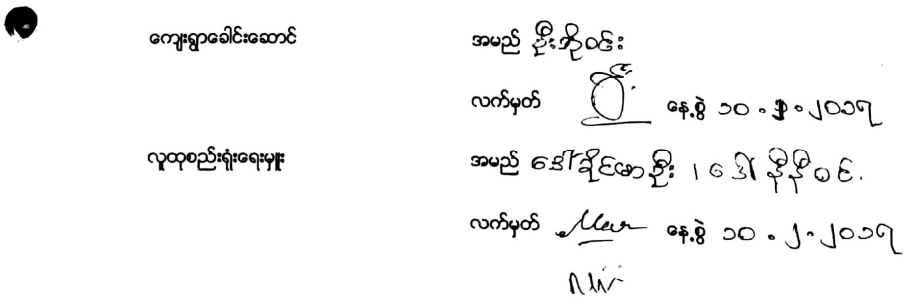 ကျေးရွာခေါင်းဆောင် အမည် ဦးအိုဝင်း
လက်မှတ် နေ့စွဲ ၁၀.၂.၂၀၁၇
လူထုစည်းရုံးရေးမှူး အမည် ဒေါ်ခိုင်မာဦး၊ ဒေါ်နီနီဝင်း
လက်မှတ် နေ့စွဲ ၁၀.၂.၂၀၁၇